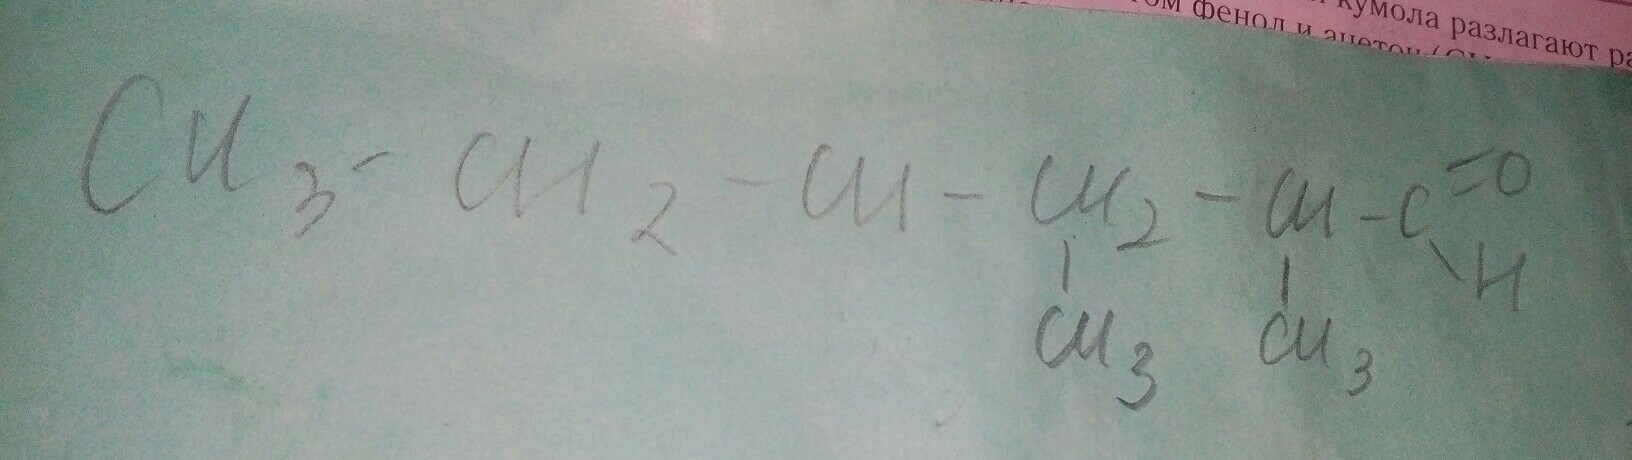 кумола разлагают
фенол и ацетон
CH3 - CH2 - CH - CH2 - CH - C =O
\ H
CH3 CH3